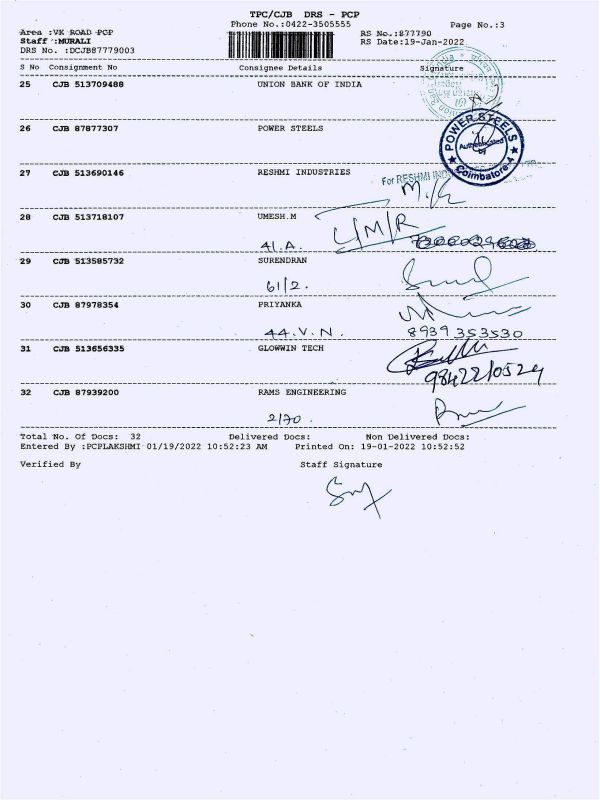 TPC/CJB DRS - PCP
Phone No.:0422-3505555 Page No.:3
Area :VK ROAD PCP RS No.:877790
Staff :MURALI RS Date:19-Jan-2022
DRS No. :DCJB87779003
S No Consignment No Consignee Details Signature
25 CJB 513709488 UNION BANK OF INDIA
26 CJB 87877307 POWER STEELS
POWER STEELS
Authenticated by
Coimbatore-4
27 CJB 513690146 RESHMI INDUSTRIES
For RESHMI IND
28 CJB 513718107 UMESH.M
41.A.
29 CJB 513585732 SURENDRAN
61/2.
30 CJB 87978354 PRIYANKA
44.V.N. 8939353530
31 CJB 513656335 GLOWWIN TECH
9842210524
32 CJB 87939200 RAMS ENGINEERING
2/70.
Total No. Of Docs: 32 Delivered Docs: Non Delivered Docs:
Entered By :PCPLAKSHMI 01/19/2022 10:52:23 AM Printed On: 19-01-2022 10:52:52
Verified By Staff Signature